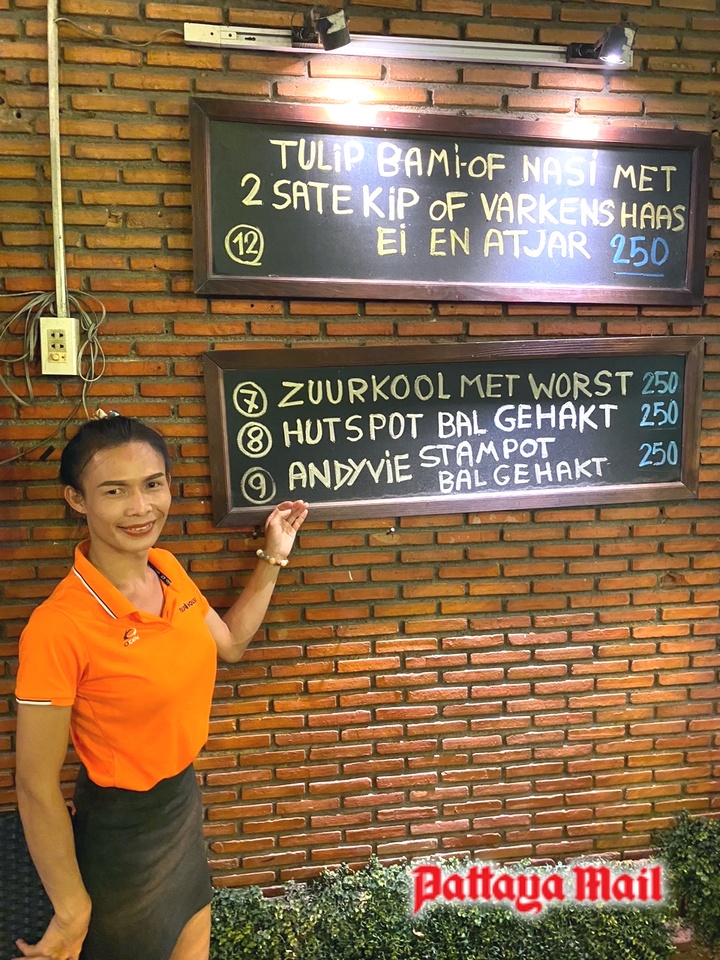 TULIP BAMI-OF NASI MET
2 SATE KIP OF VARKENSHAAS
12 EI EN ATJAR 250
7 ZUURKOOL MET WORST 250
8 HUTSPOT BAL GEHAKT 250
9 ANDYVIE STAMPOT 250
BAL GEHAKT
Pattaya Mail